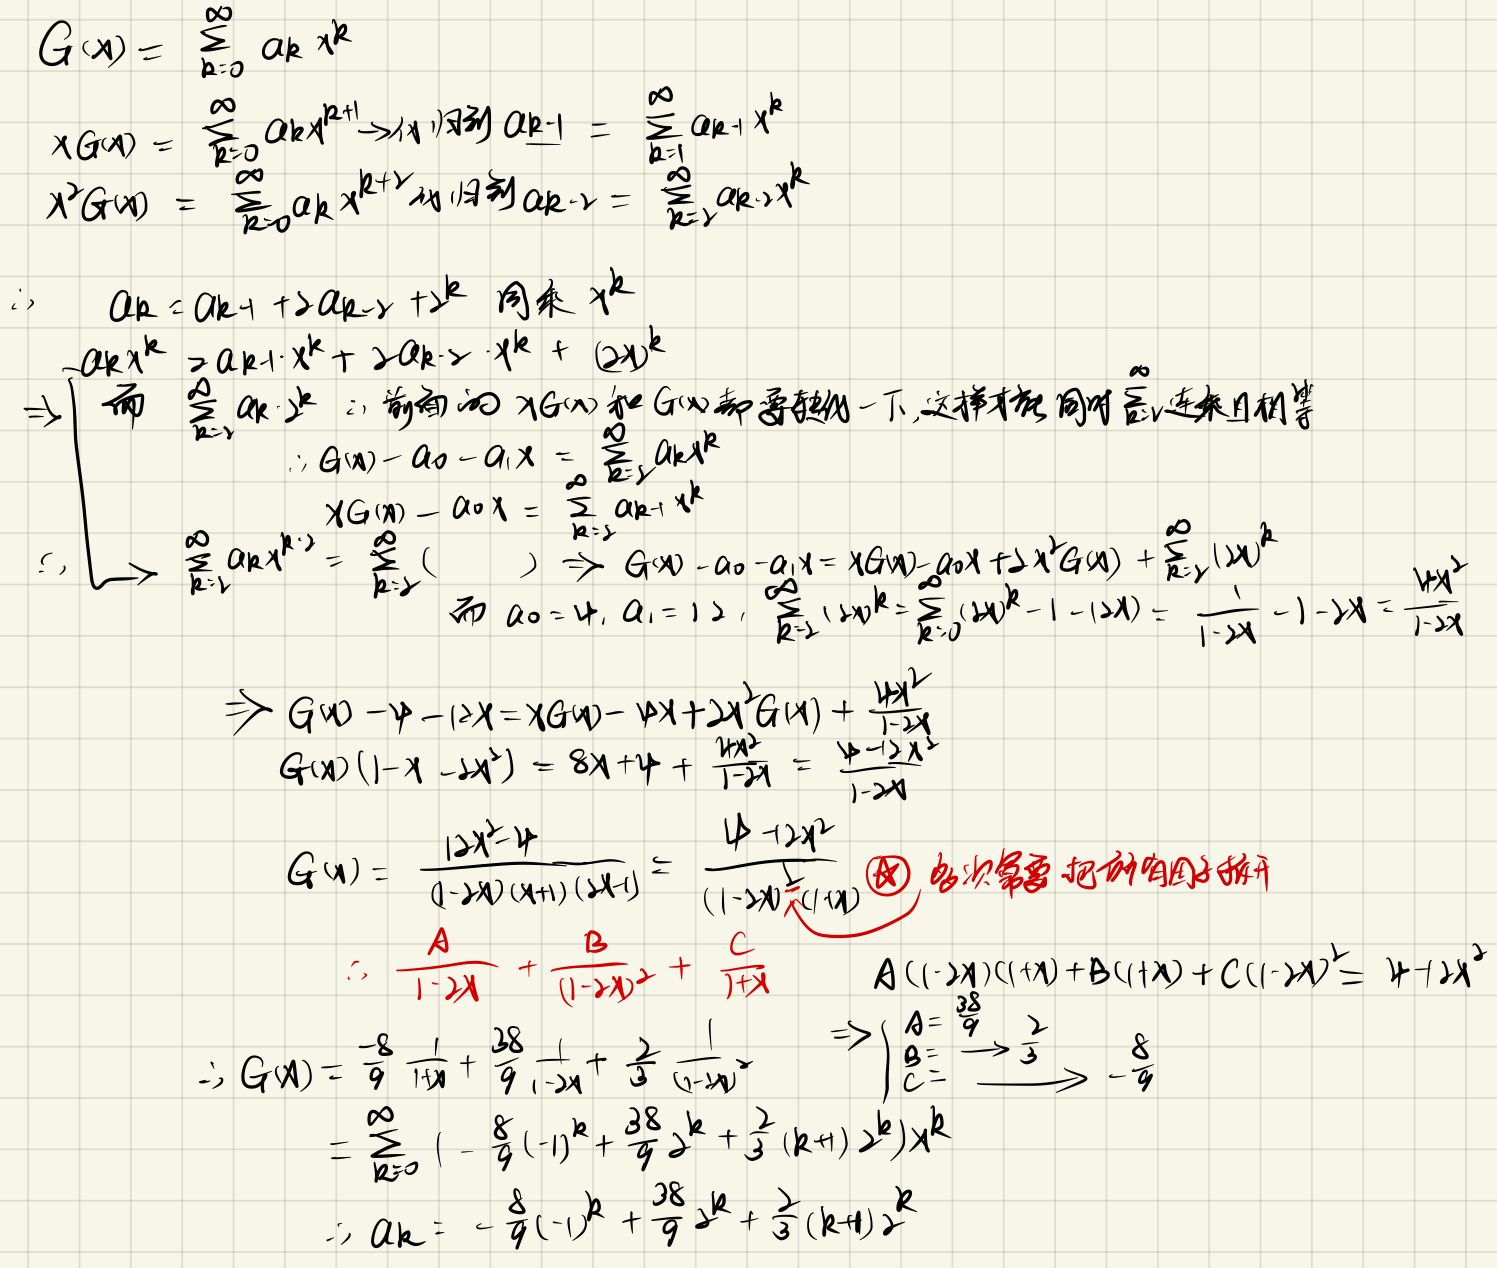 G(x) = \sum_{k=0}^{\infty} a_k x^k
xG(x) = \sum_{k=0}^{\infty} a_k x^{k+1} → 化归到 a_{k-1} = \sum_{k=1}^{\infty} a_{k-1} x^k
x^2G(x) = \sum_{k=0}^{\infty} a_k x^{k+2} 化归到 a_{k-2} = \sum_{k=2}^{\infty} a_{k-2} x^k
∴ a_k = a_{k-1} + 2a_{k-2} + 2^k 同乘 x^k
a_k x^k = a_{k-1}·x^k + 2a_{k-2}·x^k + (2x)^k
⇒ 而 \sum_{k=2}^{\infty} a_k·2^k ∴ 前面的 xG(x) 和 G(x) 都要转化一下,这样才能同时 \sum_{k=2}^{\infty} 连乘且相等
∴ G(x) - a_0 - a_1x = \sum_{k=2}^{\infty} a_k x^k
xG(x) - a_0x = \sum_{k=2}^{\infty} a_{k-1} x^k
∴ → \sum_{k=2}^{\infty} a_k x^{k-2} = \sum_{k=2}^{\infty} ( ) ⇒ G(x) - a_0 - a_1x = xG(x) - a_0x + 2x^2G(x) + \sum_{k=2}^{\infty} (2x)^k
而 a_0 = 4, a_1 = 12, \sum_{k=2}^{\infty} (2x)^k = \sum_{k=0}^{\infty} (2x)^k - 1 - (2x) = \frac{1}{1-2x} - 1 - 2x = \frac{4x^2}{1-2x}
⇒ G(x) - 4 - 12x = xG(x) - 4x + 2x^2G(x) + \frac{4x^2}{1-2x}
G(x)(1-x-2x^2) = 8x + 4 + \frac{4x^2}{1-2x} = \frac{4-12x^2}{1-2x}
G(x) = \frac{12x^2-4}{(1-2x)(x+1)(2x-1)} = \frac{4-12x^2}{(1-2x)^2(1+x)} ☆ 多次需要把所有因子拆开
∴ \frac{A}{1-2x} + \frac{B}{(1-2x)^2} + \frac{C}{1+x}
A(1-2x)(1+x) + B(1+x) + C(1-2x)^2 = 4-12x^2
⇒ { A = \frac{38}{9}
B = → \frac{2}{3}
C = → -\frac{8}{9}
∴ G(x) = \frac{-8}{9} \frac{1}{1+x} + \frac{38}{9} \frac{1}{1-2x} + \frac{2}{3} \frac{1}{(1-2x)^2}
= \sum_{k=0}^{\infty} (-\frac{8}{9}(-1)^k + \frac{38}{9} 2^k + \frac{2}{3}(k+1) 2^k) x^k
∴ a_k = -\frac{8}{9}(-1)^k + \frac{38}{9} 2^k + \frac{2}{3}(k+1) 2^k